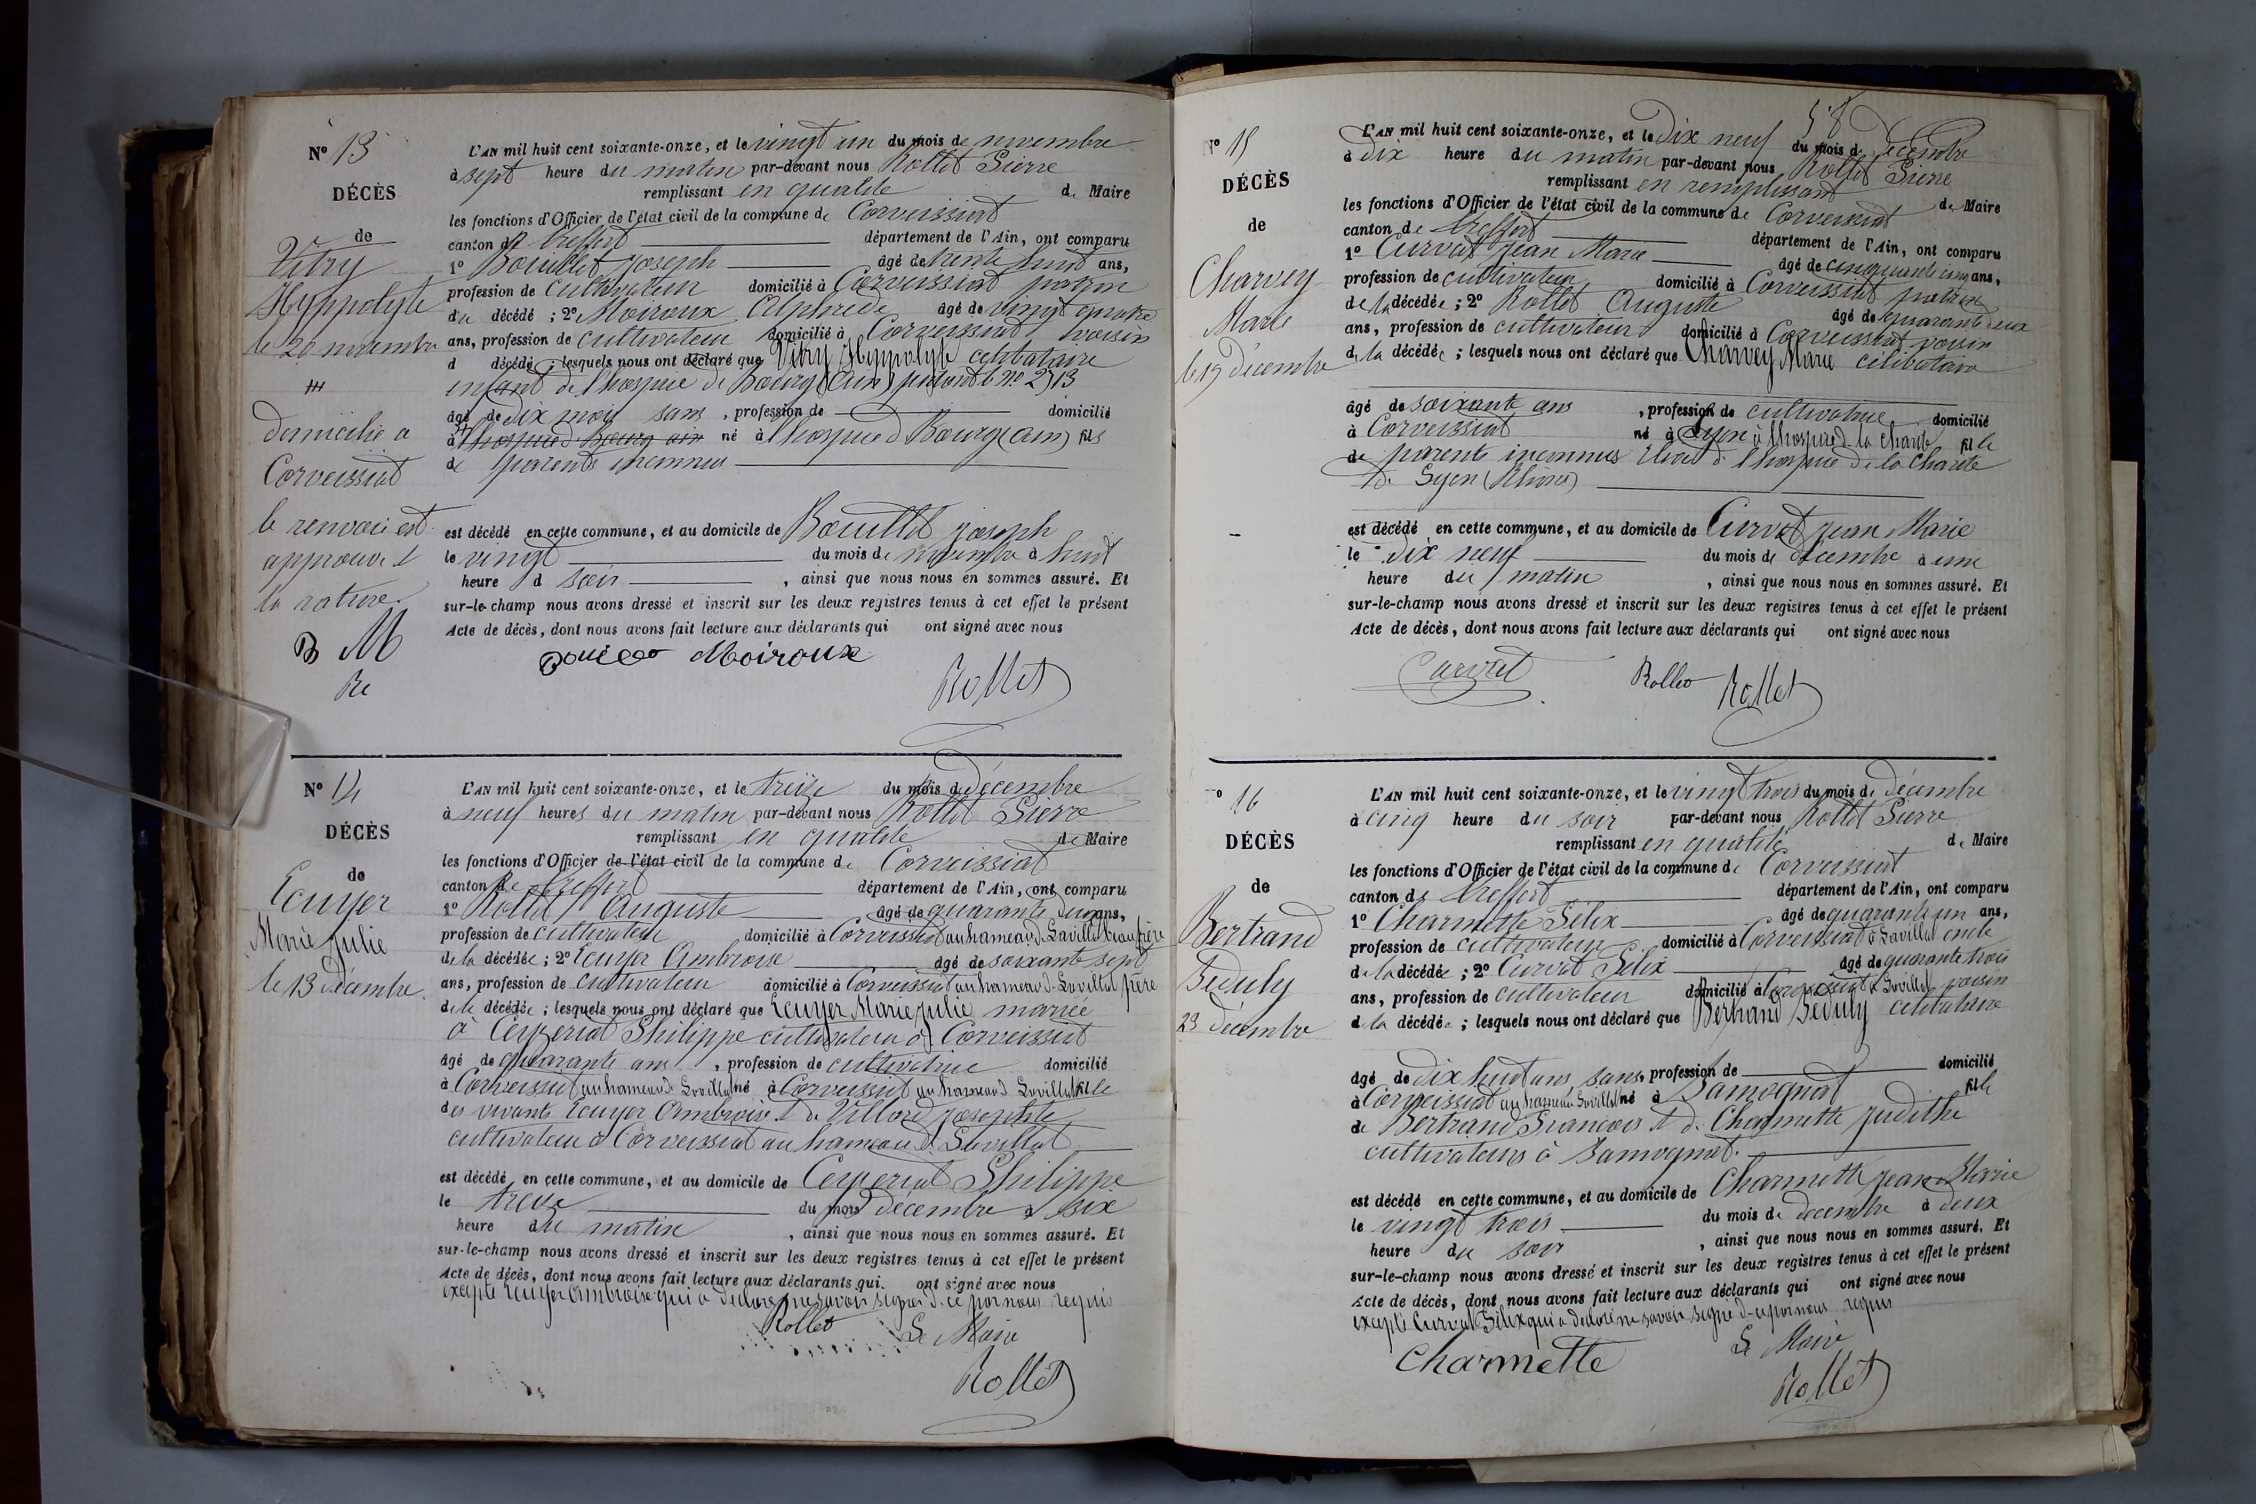 N° 13
DÉCÈS
de
Vitry
Hyppolyte
le 20 novembre
domicilié a
Corveissiat
le renvoi est
approuvé et
la rature.
B M
Re
L'AN mil huit cent soixante-onze, et le vingt un du mois de novembre
à sept heure du matin par-devant nous Rollet Pierre
remplissant en qualité de Maire
les fonctions d'Officier de l'état civil de la commune de Corveissiat
canton de treffort département de l'Ain, ont comparu
1° Bouillet joseph âgé de trente huit ans,
profession de cultivateur domicilié à Corveissiat patron
du décédé ; 2° Moiroux Alphrede âgé de vingt quatre
ans, profession de cultivateur domicilié à Corveissiat voisin
d décédé ; lesquels nous ont déclaré que Vitry Hyppolyte célibataire
enfant de l'hospice de Bourg (Ain) portant le no 2513
âgé de dix mois sans , profession de domicilié
à l'hospice d Bourg ain né à l'hospice d Bourg (ain) fils
de parents inconnus
est décédé en cette commune, et au domicile de Bouillet joseph
le vingt du mois de novembre à huit
heure d soir , ainsi que nous nous en sommes assuré. Et
sur-le-champ nous avons dressé et inscrit sur les deux registres tenus à cet effet le présent
Acte de décès, dont nous avons fait lecture aux déclarants qui ont signé avec nous
Moiroux
Rollet
N° 14
DÉCÈS
de
Ecuyer
Marie Julie
le 13 décembre
L'AN mil huit cent soixante-onze, et le treize du mois de décembre
à neuf heures du matin par-devant nous Rollet Pierre
remplissant en qualité de Maire
les fonctions d'Officier de l'état civil de la commune de Corveissiat
canton de treffort département de l'Ain, ont comparu
1° Rollet Auguste âgé de quarante deux ans,
profession de cultivateur domicilié à Corveissiat au hameau d Lavillat beau frère
de la décédée ; 2° Ecuyer Ambroise âgé de soixante sept
ans, profession de cultivateur domicilié à Corveissiat au hameau d Lavillat père
de la décédée ; lesquels nous ont déclaré que Ecuyer Marie Julie mariée
à Ceyzeriat Philippe cultivateur à Corveissiat
âgé de quarante ans , profession de cultivatrice domicilié
à Corveissiat au hameau d Lavillat né à Corveissiat au hameau d Lavillat fille
des vivants Ecuyer Ambroise et de Villard josephte
cultivateur à Corveissiat au hameau d Lavillat
est décédé en cette commune, et au domicile de Ceyzeriat Philippe
le treize du mois décembre à six
heure du matin , ainsi que nous nous en sommes assuré. Et
sur-le-champ nous avons dressé et inscrit sur les deux registres tenus à cet effet le présent
Acte de décès, dont nous avons fait lecture aux déclarants qui ont signé avec nous
excepté Ecuyer Ambroise qui a déclaré ne savoir signer d ce par nous requis
Rollet Le Maire
Rollet
58
N° 15
DÉCÈS
de
Charvey
Marie
le 19 décembre
L'AN mil huit cent soixante-onze, et le Dix neuf du mois d décembre
à Dix heure du matin par-devant nous Rollet Pierre
remplissant en remplissant de Maire
les fonctions d'Officier de l'état civil de la commune de Corveissiat
canton de treffort département de l'Ain, ont comparu
1° Curvat jean Marie âgé de cinquante cinq ans,
profession de cultivateur domicilié à Corveissiat patron
de la décédée ; 2° Rollet Auguste âgé de quarante deux
ans, profession de cultivateur domicilié à Corveissiat voisin
de la décédée ; lesquels nous ont déclaré que Charvey Marie célibataire
âgé de soixante ans , profession de cultivatrice domicilié
à Corveissiat né à Lyon à l'hospice d la charité fille
de parents inconnus Elève d l'hospice de la charité
de Lyon (Rhone)
est décédé en cette commune, et au domicile de Curvat jean Marie
le dix neuf du mois de décembre à une
heure du matin , ainsi que nous nous en sommes assuré. Et
sur-le-champ nous avons dressé et inscrit sur les deux registres tenus à cet effet le présent
Acte de décès, dont nous avons fait lecture aux déclarants qui ont signé avec nous
Curvat Rollet Rollet
° 16
DÉCÈS
de
Bertrand
Béduly
23 décembre
L'AN mil huit cent soixante-onze, et le vingt trois du mois de décembre
à cinq heure du soir par-devant nous Rollet Pierre
remplissant en qualité de Maire
les fonctions d'Officier de l'état civil de la commune de Corveissiat
canton de treffort département de l'Ain, ont comparu
1° Charmette Félix âgé de quarante un ans,
profession de cultivateur domicilié à Corveissiat à Lavillat oncle
de la décédée ; 2° Curvat Félix âgé de quarante trois
ans, profession de cultivateur domicilié à Corveissiat à Lavillat voisin
d la décédée ; lesquels nous ont déclaré que Bertrand Béduly célibataire
âgé de dix huit ans, sans profession de domicilié
à Corveissiat au hameau Lavillat né à Samognat fille
de Bertrand Francois et d. Charmette judithe
cultivateurs à Samognat.
est décédé en cette commune, et au domicile de Charmette jean Marie
le vingt trois du mois de décembre à deux
heure du soir , ainsi que nous nous en sommes assuré. Et
sur-le-champ nous avons dressé et inscrit sur les deux registres tenus à cet effet le présent
Acte de décès, dont nous avons fait lecture aux déclarants qui ont signé avec nous
excepté Curvat Félix qui a déclaré ne savoir signé d ce par nous requis
Charmette Le Maire
Rollet